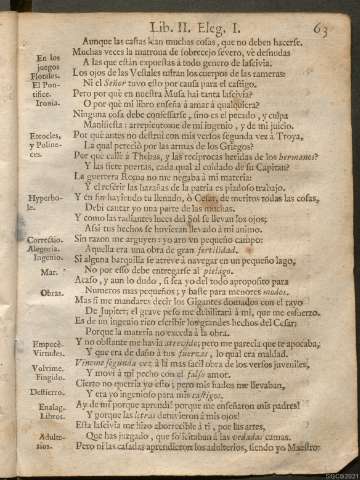 Lib. II. Eleg. I. 63
Aunque las castas lean muchas cosas, que no deben hacerse.
Muchas veces la matrona de sobrecejo severo, vè desnudas
En los juegos Florales.
A las que están expuestas à todo genero de lascivia:
Los ojos de las Vestales lustran los cuerpos de las rameras:
El Pontifice.
Ni el Señor tuvo esto por causa para el castigo.
Pero por què en nuestra Musa hai tanta lascivia?
Ironia.
O por què mi libro enseña à amar à qualquiera?
Ninguna cosa debe confessarse, sino es el pecado, y culpa
Manifiesta: arrepientome de mi ingenio, y de mi juicio.
Eteocles, y Polinices.
Por què antes no destruì con mis versos segunda vez à Troya,
La qual pereciò por las armas de los Griegos?
Por què callè à Thebas, y las reciprocas heridas de los hermanos?
Y las siete puertas, cada qual al cuidado de su Capitan?
La guerrera Roma no me negaba à mi materia:
Y es referir las hazañas de la patria es piadoso trabajo.
Hyperbole.
Y en fin haviendo tu llenado, ò Cesar, de meritos todas las cosas,
Debi cantar yo una parte de las muchas.
Y como las radiantes luces del Sol se llevan los ojos;
Assi tus hechos se huvieran llevado à mi animo.
Correctio.
Sin razon me arguyen: yo aro un pequeño campo:
Alegoria.
Aquella era una obra de gran fertilidad.
Ingenio.
Si alguna barquilla se atreve à navegar en un pequeño lago,
Mar.
No por esso debe entregarse al pielago.
Acaso, y aun lo dudo, si sea yo del todo aproposito para
Obras.
Numeros mas pequeños; y baste para menores modos.
Mas si me mandares decir los Gigantes domados con el rayo
De Jupiter; el grave peso me debilitará à mi, que me esfuerzo.
Es de un ingenio rico escribir los grandes hechos del Cesar:
Porque la materia no exceda à la obra.
Empecè.
Y no obstante me havia atrevido; pero me parecia que te apocaba,
Virtudes.
Y que era de daño à tus fuerzas, lo qual era maldad.
Volvime.
Vineme segunda vez à la mas facil obra de los versos juveniles,
Fingido.
Y movi à mi pecho con el falso amor.
Cierto no queria yo esto; pero mis hados me llevaban,
Destierro.
Y era yo ingenioso para mis castigos.
Enalag.
Ay de mi! porque aprendi! porque me enseñaron mis padres!
Libros.
Y porque las letras detuvieron à mis ojos!
Esta lascivia me hizo aborrecible à tì, por las artes,
Adulterios.
Que has juzgado, que solicitaban à las vedadas camas.
Pero ni las casadas aprendieron los adulterios, siendo yo Maestro:
SGCB3921